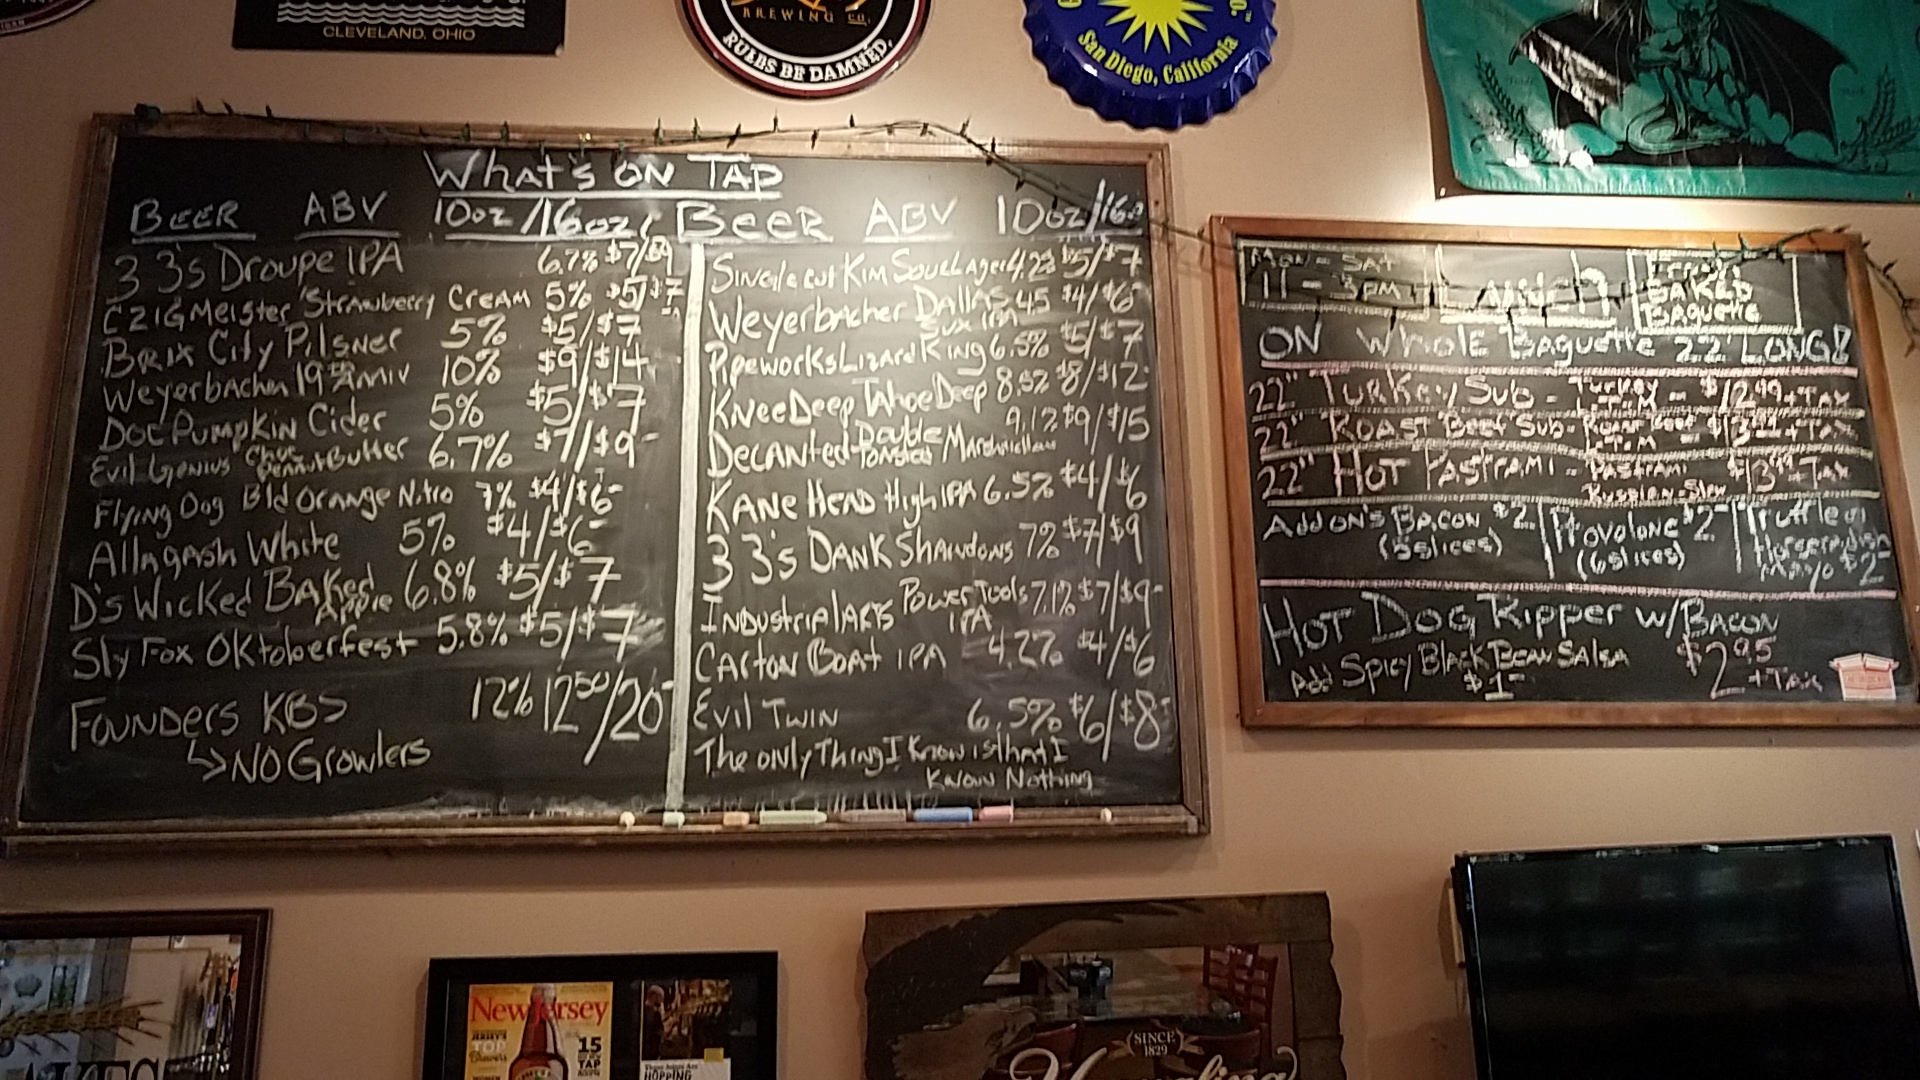 CLEVELAND, OHIO
BREWING CO.
RULES BE DAMNED.
San Diego, California
WHAT'S ON TAP
BEER ABV 10oz/16oz
3 3's Droupe IPA 6.7% $7/$9
CZIGMeister Strawberry Cream 5% $5/$7
Brix City Pilsner 5% $5/$7
Weyerbacher 19th Anniv 10% $9/$14
Doc Pumpkin Cider 5% $5/$7
Evil Genius Choc Peanut Butter 6.7% $7/$9
Flying Dog Bld Orange Nitro 7% $4/$6
Allagash White 5% $4/$6
D's Wicked Baked Apple 6.8% $5/$7
Sly Fox Oktoberfest 5.8% $5/$7
Founders KBS 12% 12⁵⁰/20
↳ NO Growlers
Beer ABV 10oz/16o
Singlecut Kim Sour Lager 4.2% $5/$7
Weyerbacher Dallas Sux IPA 4.5 $4/$6
Pipeworks Lizard King 6.5% $5/$7
Knee Deep Tahoe Deep 8.5% $8/$12
Decanted Double Toasted Marshmallow 9.1% $9/$15
Kane Head High IPA 6.5% $4/$6
3 3's Dank Shawdons 7% $7/$9
Industrial Arts Power Tools IPA 7.1% $7/$9
Carton Boat IPA 4.2% $4/$6
Evil Twin 6.5% $6/$8
The only Thing I Know is that I
Know Nothing
Mon - Sat
11 - 3pm
LUNCH
BAKED
Baguette
ON Whole Baguette 22" LONG!
22" Turkey Sub - Turkey L.T.M - $12.99 + TAX
22" Roast Beef Sub - Roast Beef L.T.M $13.99 + TAX
22" Hot Pastrami - Pastrami Russian - Slaw $13.99 + Tax
Add on's Bacon $2 (5 slices)
Provolone $2 (6 slices)
Truffle Horseradish Mayo $2
Hot Dog Ripper w/Bacon
$2.95 + Tax
Add Spicy Black Bean Salsa
$1
New Jersey
TOP
15
TAP
HOPPING
SINCE
1829
Yuengling